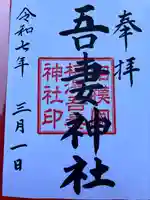 奉拝
吾妻神社
令和七年
三月一日
神社印